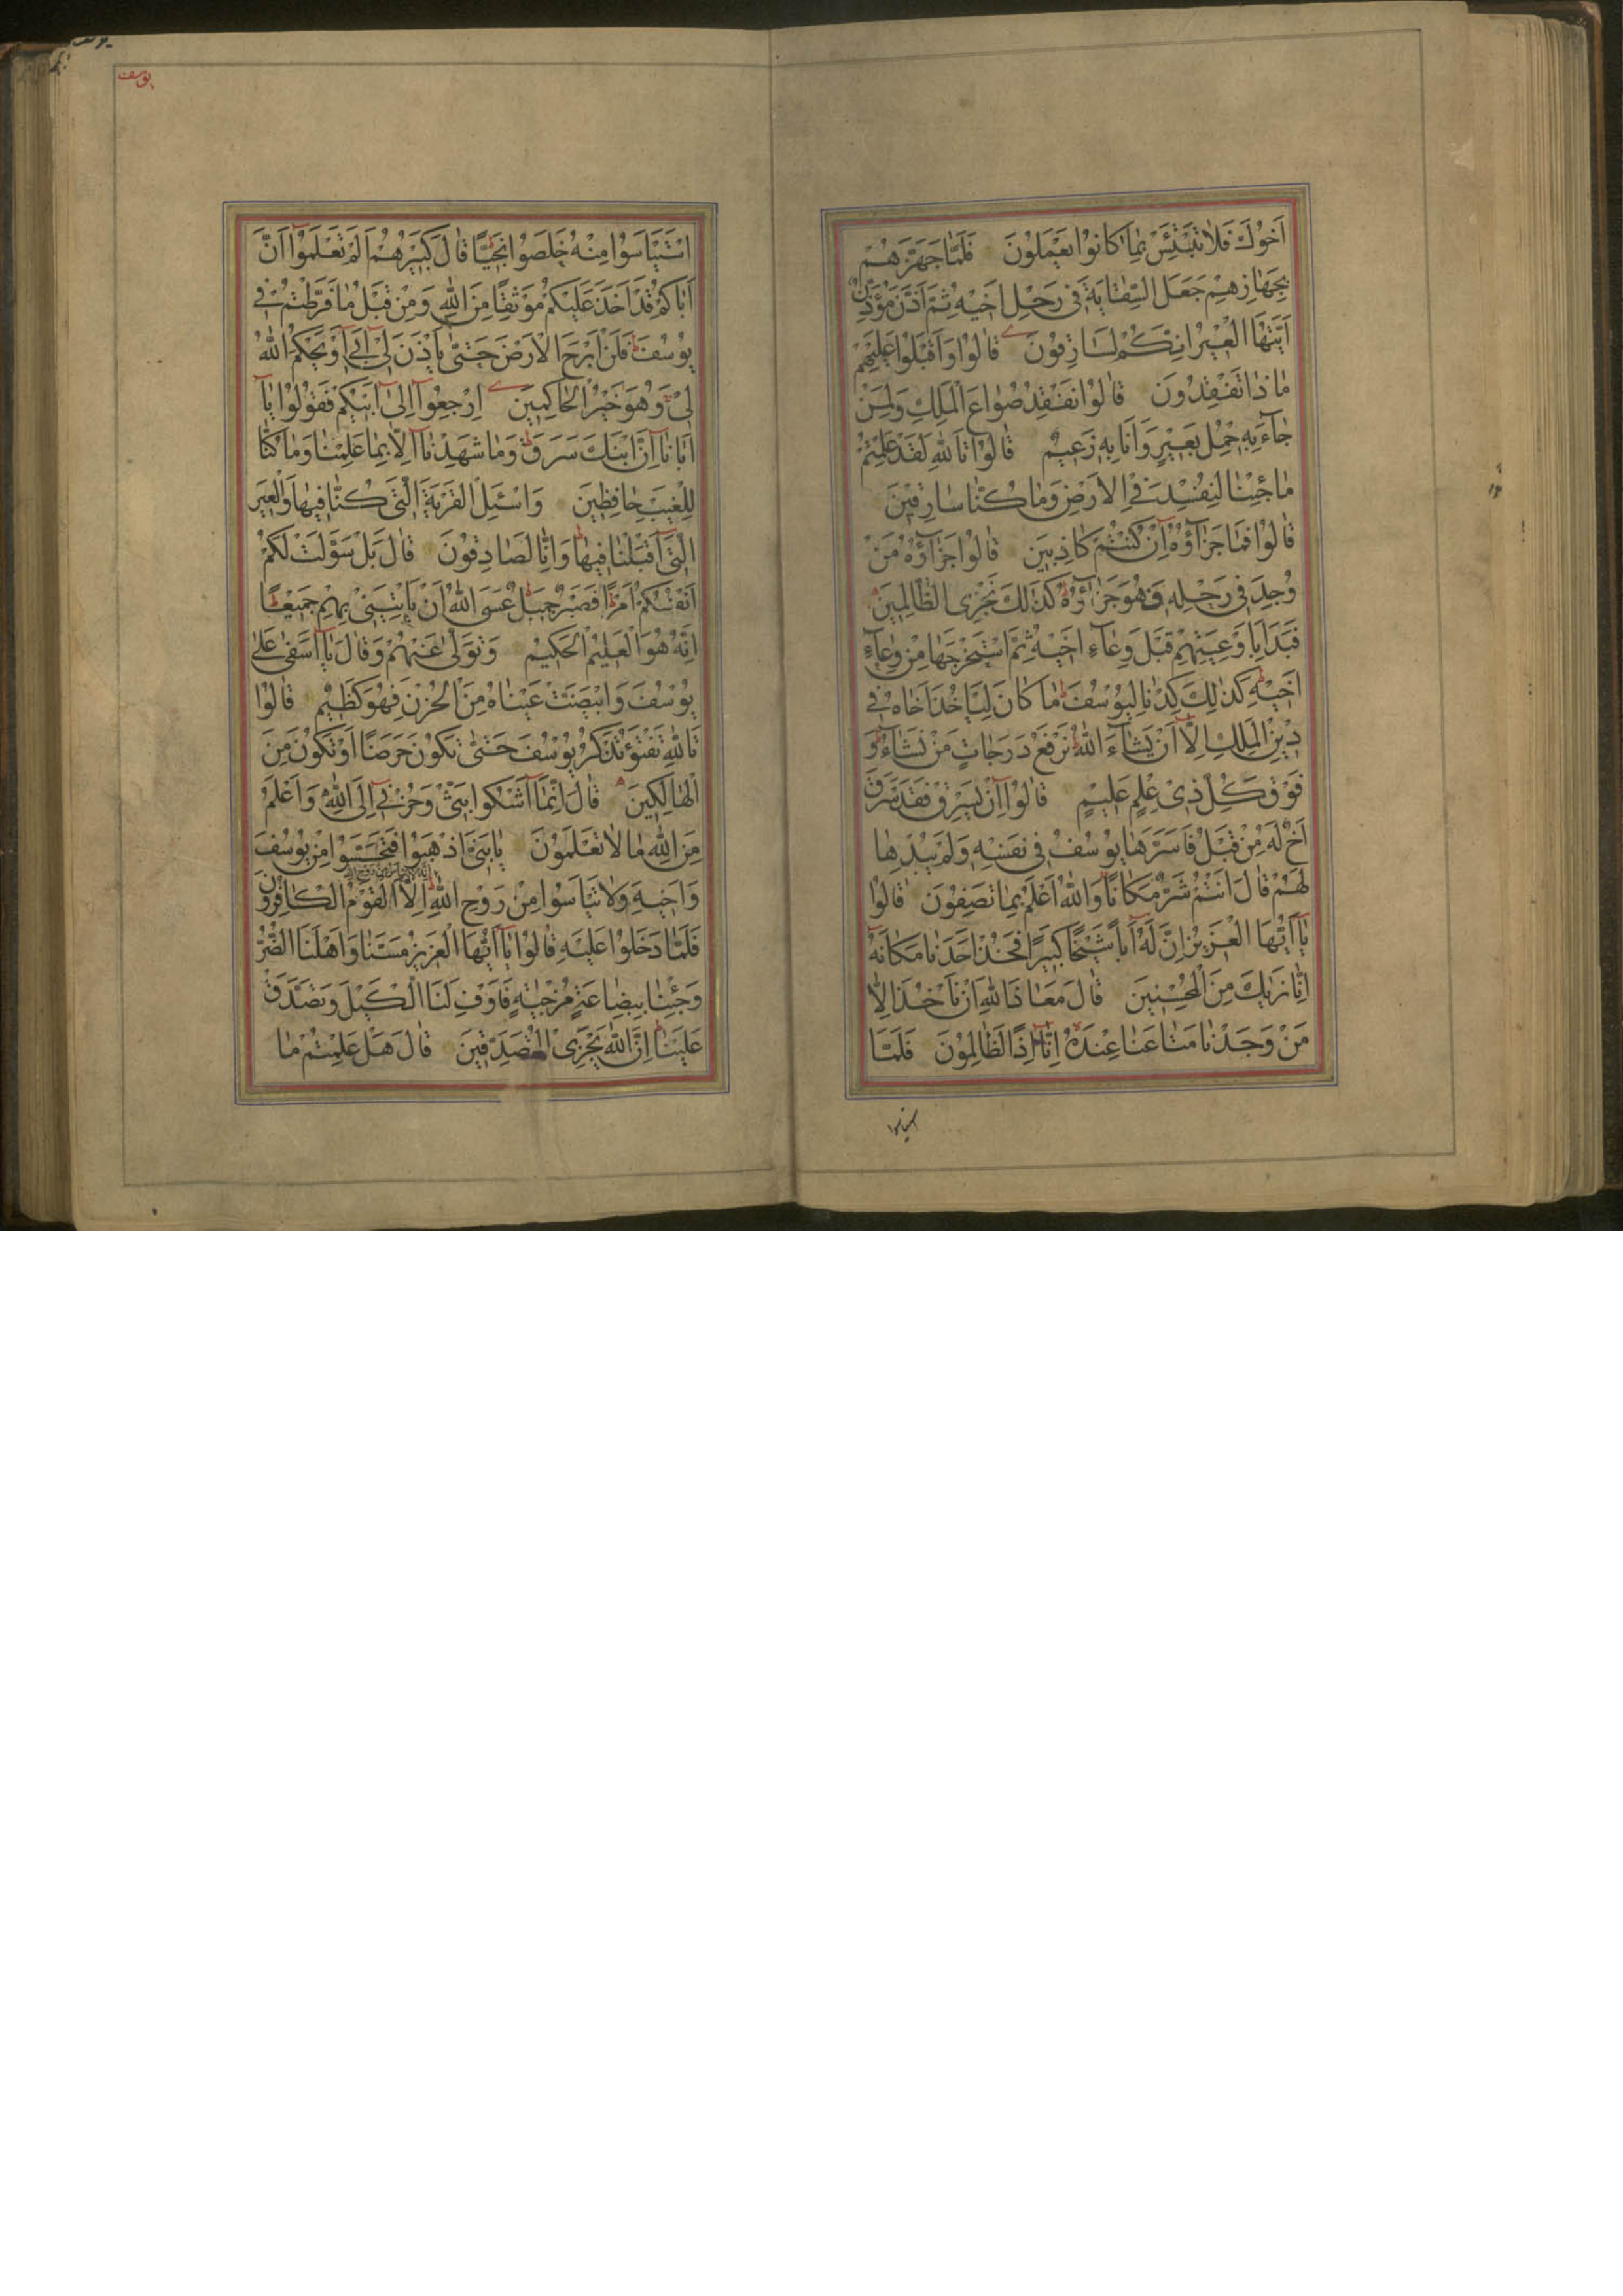 اَخُوكَ فَلاٰ تَبْتَئِسْ بِمٰا كٰانُوا يَعْمَلُونَ فَلَمّٰا جَهَّزَهُمْ
بِجَهٰازِهِمْ جَعَلَ السِّقٰايَةَ فى رَحْلِ اَخيهِ ثُمَّ اَذَّنَ مُؤَذِّنٌ
اَيَّتُهَا الْعيرُ اِنَّكُمْ لَسٰارِقُونَ قٰالُوا وَاَقْبَلُوا عَلَيْهِمْ
مٰاذٰا تَفْقِدُونَ قٰالُوا نَفْقِدُ صُوٰاعَ الْمَلِكِ وَلِمَنْ
جٰآءَ بِهِ حِمْلُ بَعيرٍ وَاَنَا بِهِ زَعيمٌ قٰالُوا تَاللّٰهِ لَقَدْ عَلِمْتُمْ
مٰا جِئْنٰا لِنُفْسِدَ فِى الْاَرْضِ وَمٰا كُنّٰا سٰارِقينَ
قٰالُوا فَمٰا جَزٰآؤُهُ اِنْ كُنْتُمْ كٰاذِبينَ قٰالُوا جَزٰآؤُهُ مَنْ
وُجِدَ فى رَحْلِهِ فَهُوَ جَزٰآؤُهُ كَذٰلِكَ نَجْزِى الظّٰالِمينَ
فَبَدَاَ بِاَوْعِيَتِهِمْ قَبْلَ وِعٰآءِ اَخيهِ ثُمَّ اسْتَخْرَجَهٰا مِنْ وِعٰآءِ
اَخيهِ كَذٰلِكَ كِدْنٰا لِيُوسُفَ مٰا كٰانَ لِيَاْخُذَ اَخٰاهُ فى
دينِ الْمَلِكِ اِلّٰا اَنْ يَشٰآءَ اللّٰهُ نَرْفَعُ دَرَجٰاتٍ مَنْ نَشٰآءُ وَ
فَوْقَ كُلِّ ذى عِلْمٍ عَليمٌ قٰالُوا اِنْ يَسْرِقْ فَقَدْ سَرَقَ
اَخٌ لَهُ مِنْ قَبْلُ فَاَسَرَّهٰا يُوسُفُ فى نَفْسِهِ وَلَمْ يُبْدِهٰا
لَهُمْ قٰالَ اَنْتُمْ شَرٌّ مَكٰانًا وَاللّٰهُ اَعْلَمُ بِمٰا تَصِفُونَ قٰالُوا
يٰآ اَيُّهَا الْعَزيزُ اِنَّ لَهُ اَبًا شَيْخًا كَبيرًا فَخُذْ اَحَدَنٰا مَكٰانَهُ
اِنّٰا نَرٰيكَ مِنَ الْمُحْسِنينَ قٰالَ مَعٰاذَ اللّٰهِ اَنْ نَاْخُذَ اِلّٰا
مَنْ وَجَدْنٰا مَتٰاعَنٰا عِنْدَهُ اِنّٰآ اِذًا لَظٰالِمُونَ فَلَمَّا
استیاسوا
يوسف
اسْتَيْاَسُوا مِنْهُ خَلَصُوا نَجِيًّا قٰالَ كَبيرُهُمْ اَلَمْ تَعْلَمُوا اَنَّ
اَبٰاكُمْ قَدْ اَخَذَ عَلَيْكُمْ مَوْثِقًا مِنَ اللّٰهِ وَمِنْ قَبْلُ مٰا فَرَّطْتُمْ فى
يُوسُفَ فَلَنْ اَبْرَحَ الْاَرْضَ حَتّٰى يَاْذَنَ لى اَبى اَوْ يَحْكُمَ اللّٰهُ
لى وَهُوَ خَيْرُ الْحٰاكِمينَ اِرْجِعُوا اِلٰى اَبيكُمْ فَقُولُوا يٰآ
اَبٰانٰآ اِنَّ ابْنَكَ سَرَقَ وَمٰا شَهِدْنٰآ اِلّٰا بِمٰا عَلِمْنٰا وَمٰا كُنّٰا
لِلْغَيْبِ حٰافِظينَ وَاسْئَلِ الْقَرْيَةَ الَّتى كُنّٰا فيهٰا وَالْعيرَ
الَّتى اَقْبَلْنٰا فيهٰا وَاِنّٰا لَصٰادِقُونَ قٰالَ بَلْ سَوَّلَتْ لَكُمْ
اَنْفُسُكُمْ اَمْرًا فَصَبْرٌ جَميلٌ عَسَى اللّٰهُ اَنْ يَاْتِيَنى بِهِمْ جَميعًا
اِنَّهُ هُوَ الْعَليمُ الْحَكيمُ وَتَوَلّٰى عَنْهُمْ وَقٰالَ يٰآ اَسَفٰى عَلٰى
يُوسُفَ وَابْيَضَّتْ عَيْنٰاهُ مِنَ الْحُزْنِ فَهُوَ كَظيمٌ قٰالُوا
تَاللّٰهِ تَفْتَؤُ تَذْكُرُ يُوسُفَ حَتّٰى تَكُونَ حَرَضًا اَوْ تَكُونَ مِنَ
الْهٰالِكينَ قٰالَ اِنَّمٰآ اَشْكُوا بَثّى وَحُزْنى اِلَى اللّٰهِ وَاَعْلَمُ
مِنَ اللّٰهِ مٰا لاٰ تَعْلَمُونَ يٰا بَنِىَّ اذْهَبُوا فَتَحَسَّسُوا مِنْ يُوسُفَ
وَاَخيهِ وَلاٰ تَيْاَسُوا مِنْ رَوْحِ اللّٰهِ انه لا يياس من روح الله اِلَّا الْقَوْمُ الْكٰافِرُونَ
فَلَمّٰا دَخَلُوا عَلَيْهِ قٰالُوا يٰآ اَيُّهَا الْعَزيزُ مَسَّنٰا وَاَهْلَنَا الضُّرُّ
وَجِئْنٰا بِبِضٰاعَةٍ مُزْجٰيةٍ فَاَوْفِ لَنَا الْكَيْلَ وَتَصَدَّقْ
عَلَيْنٰا اِنَّ اللّٰهَ يَجْزِى الْمُتَصَدِّقينَ قٰالَ هَلْ عَلِمْتُمْ مٰا